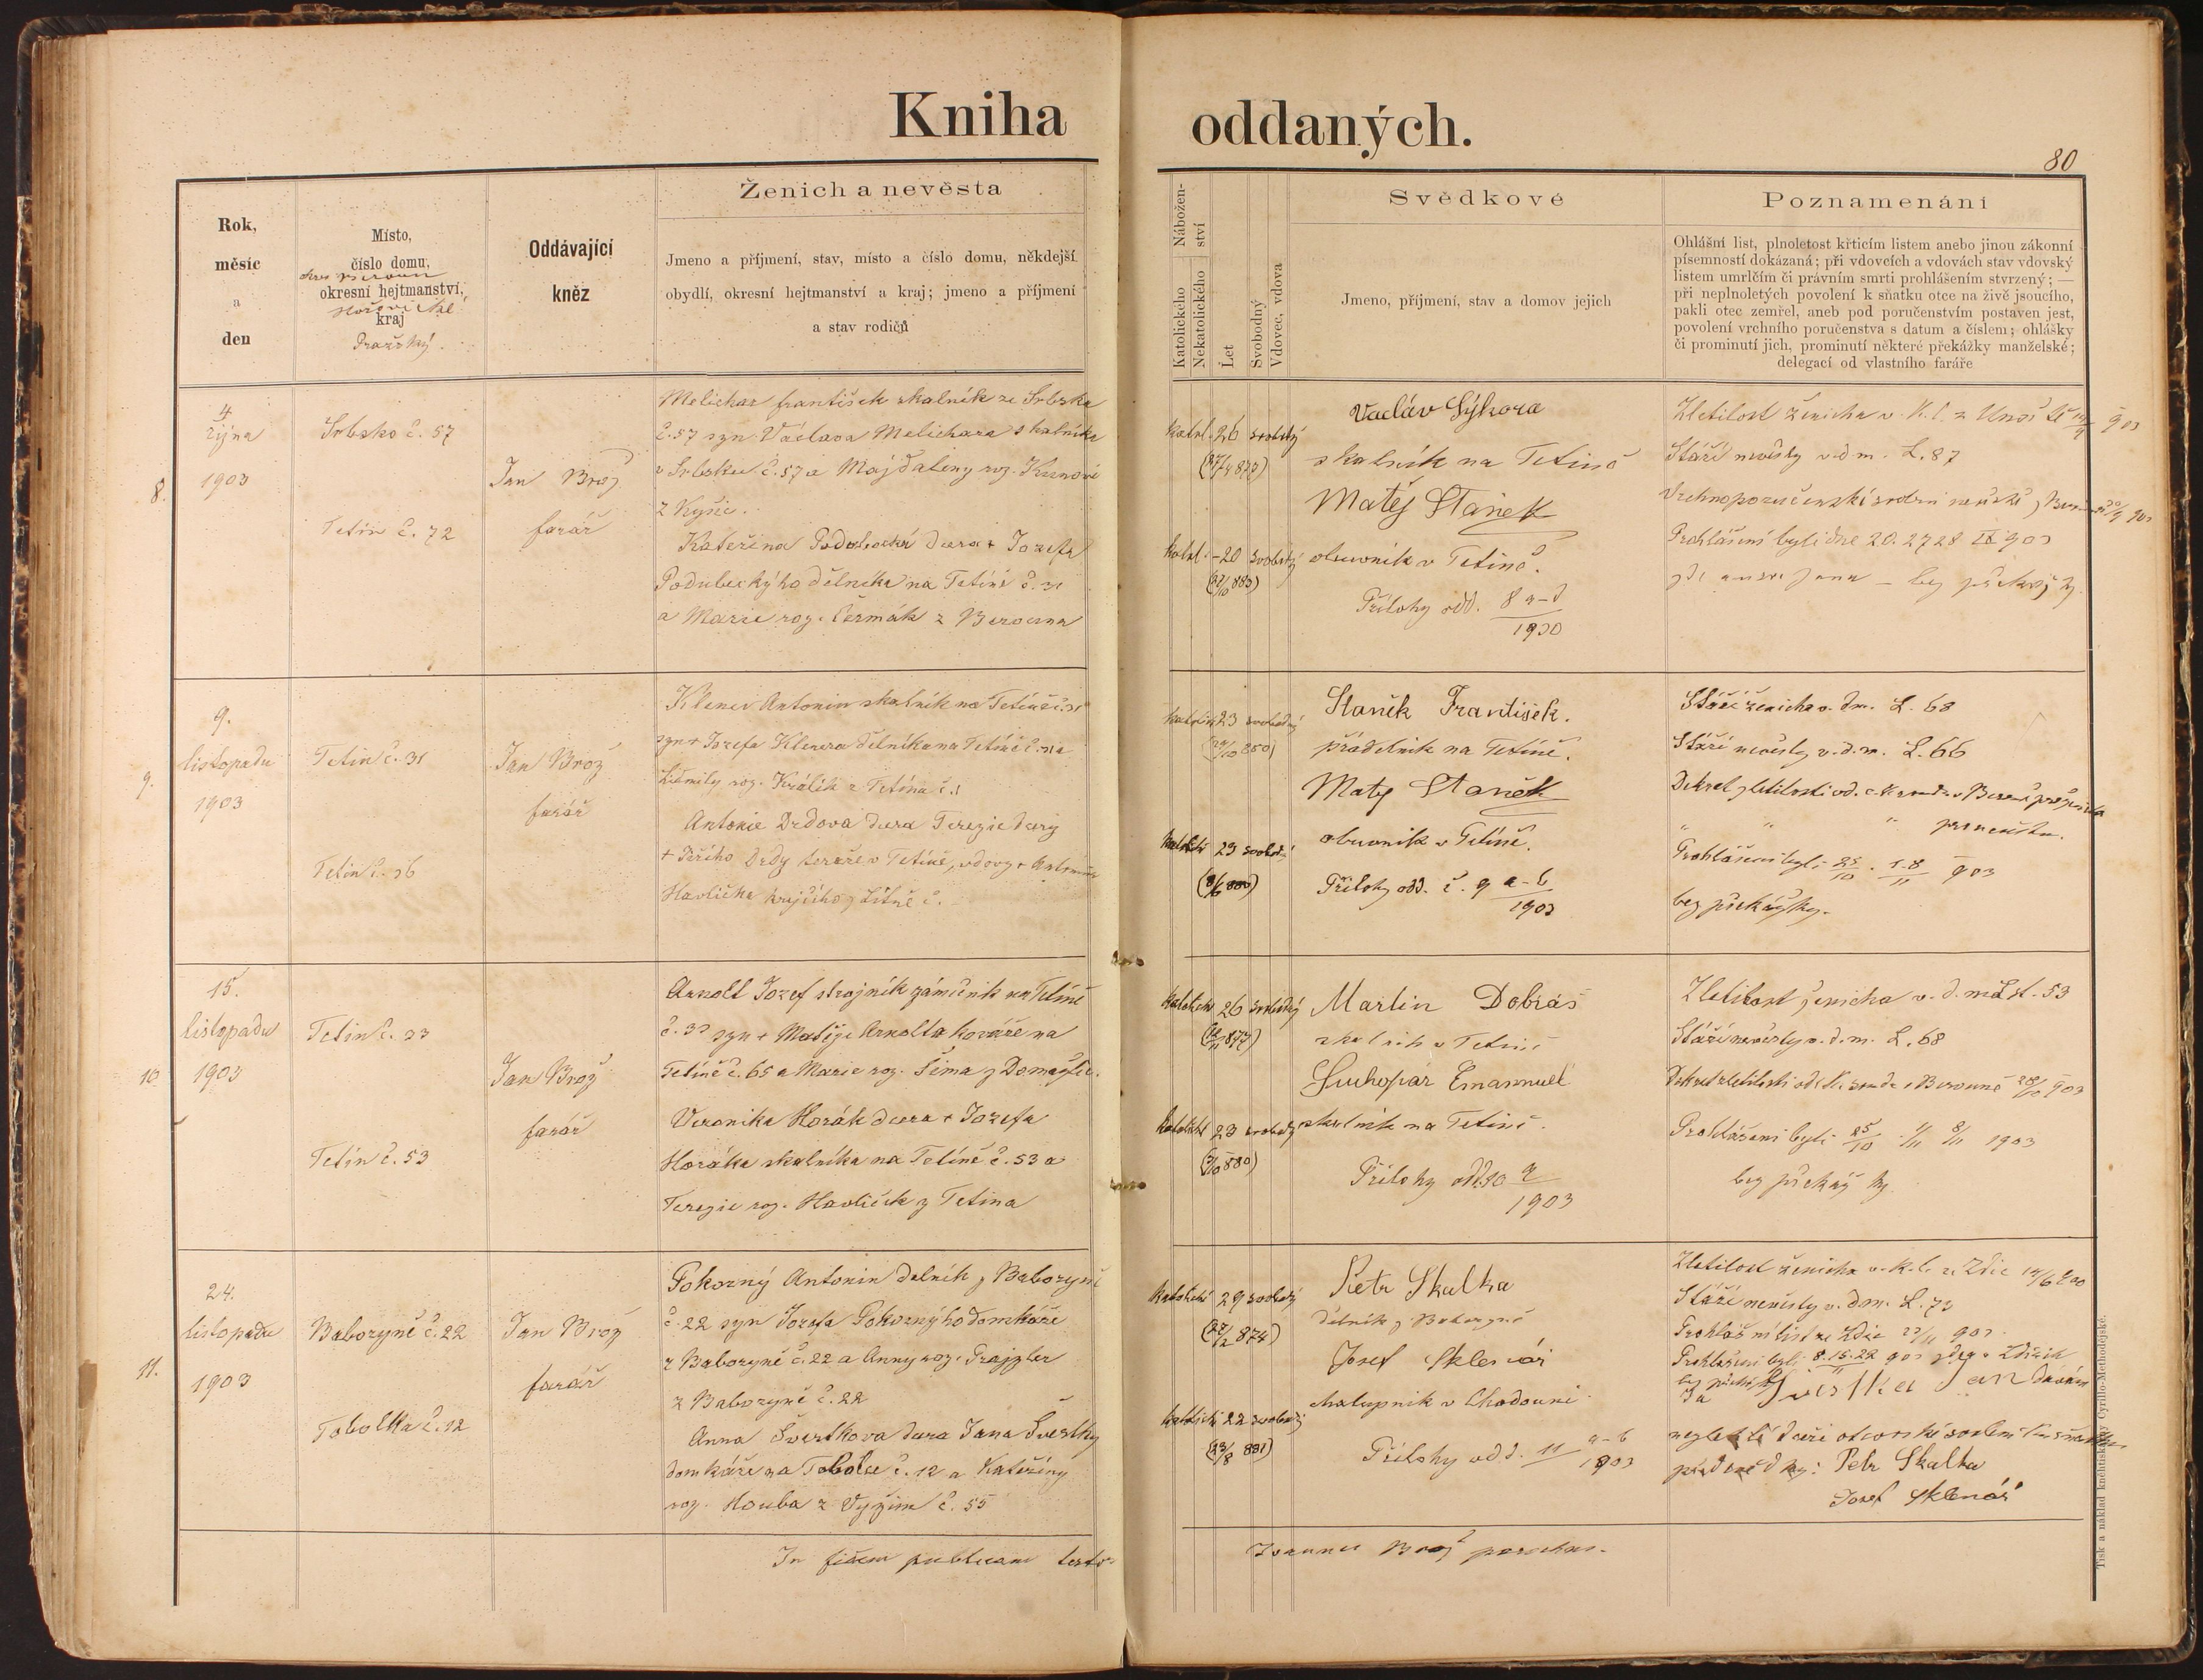 Kniha oddaných.
80
Rok,
měsíc
a
den
Místo,
číslo domu,
okres Beroun
okresní hejtmanství,
kraj
Pražský.
Oddávající
kněz
Ženich a nevěsta
Jmeno a příjmení, stav, místo a číslo domu, někdejší
obydlí, okresní hejtmanství a kraj; jmeno a příjmení
a stav rodičů
Nábožen-
ství
Katolického
Nekatolického
Let
Svobodný
Vdovec, vdova
Svědkové
Jmeno, příjmení, stav a domov jejich
Poznamenání
Ohlášní list, plnoletost křticím listem anebo jinou zákonní
písemností dokázaná; při vdovcích a vdovách stav vdovský
listem umrlčím či právním smrti prohlášením stvrzený; —
při neplnoletých povolení k sňatku otce na živě jsoucího,
pakli otec zemřel, aneb pod poručenstvím postaven jest,
povolení vrchního poručenstva s datum a číslem; ohlášky
či prominutí jich, prominutí některé překážky manželské;
delegací od vlastního faráře
8.
4
října
1903
Srbsko č. 57
Tetín č. 72
Jan Brož
farář
Melichar František skalník ze Srbska
č. 57 syn Václava Melichara skalníka
v Srbsku č. 57 a Majdaleny roz. Kunové
z Kyšic.
Kateřina Podubecká dcera + Jozefa
Podubeckýho dělníka na Tetíně č. 31
a Marie roz. Čermák z Berouna
katol. 26 svobodný
(27/4 877)
katol. - 20 svobodný
(883)
Vaclav Sýkora
skalník na Tetíně
Matěj Staněk
obuvník v Tetíně.
Přílohy odd. 8 a-d
1903
Zletilost ženicha v. k. l. z 903
Stáří nevěsty v d m. L. 87
Prohlášeni byli dne 20. 27 28 IX 903
bez překážky.
9.
9.
listopadu
1903
Tetin č. 31
Tetin č. 36
Jan Brož
farář
Klener Antonin skalník na Tetíně č. 31
syn + Jozefa Klenera dělníka na Tetíně č. 31 a
Ludmily roz. Králík z Tetína č. 1
Antonie Drdova dcera Terezie dcery
+ Jiřího Drdy tesaře v Tetíně, vdovy + Antonína
Havlíčka krejčího z Litně č.
23 svobodný
(29/10 880)
29 svobodná
Staněk František.
přádelník na Tetíně.
Matěj Staněk
obuvník v Tetíně.
Přílohy odd. č. 9 a-b
1903
Stáří ženicha v. d m. L. 68
Stáří nevěsty v. d. m. L. 66
Dekret zletilosti od c. k. soudu v Berouně pro ženicha
" " " pro nevěstu.
Prohlášeni byli 25/10 . 1.8/11 903
bez překážky.
10.
15.
listopadu
1903
Tetin č. 33
Tetín č. 53
Jan Brož
farář
Arnolt Jozef strojník zámečník na Tetíně
č. 33 syn + Matěje Arnolta kováře na
Tetíně č. 65 a Marie roz. Šíma z Domažlic.
Veronika Horák dcera + Jozefa
Horáka skalníka na Tetíně č. 53 a
Terezie roz. Havlíček z Tetína
26 svobodný
(877)
23 svobodný
(880)
Martin Dobiáš
skalník v Tetíně
Suchopár Emanuel
skalník na Tetíně.
Přílohy odd. 10 a
1903
Zletilost ženicha v. d. m. L st. 53
Stáří nevěsty v. d. m. L. 68
Dekret zletilosti od c. k. soudu v Berouně 28/10 903
Prohlášeni byli 25/10 . 1/11 8/11 1903
bez překážky
11.
24.
listopadu
1903
Baboryně č. 22
Tobolka č. 12
Jan Brož
farář
Pokorný Antonín dělník z Baboryně
č. 22 syn Jozefa Pokornýho domkáře
z Baboryně č. 22 a Anny roz. Prajzler
z Baboryně č. 22
Anna Švestkova dcera Jana Švestky
domkáře na Tobolce č. 12 a Kateřiny
roz. Houba z Vyžim č. 55
katolické 29 svobodný
(27/2 874)
katolické 22 svobodný
(23/8 881)
Petr Skalka
dělník z Baboryně
Josef Sklenář
chalupník v Chodouni
Přílohy odd. 11 a-b
1903
Zletilost ženicha v. k. l. ze Zdic 14/6 900
Stáří nevěsty v. d m. L. 73
Prohlášní list ze Zdic 903.
Prohlášeni byli 8.15.22/11 903 zde a Zdicích
bez překážky
Já Švestka Jan dávám
nezletilé dceři otcovské svolení k sňatku
před svědky: Petr Skalka
Josef Sklenář
In fidem publicam testor
Joannes Brož parochus.
Tisk a náklad kněhtiskárny Cyrillo-Methodějské.